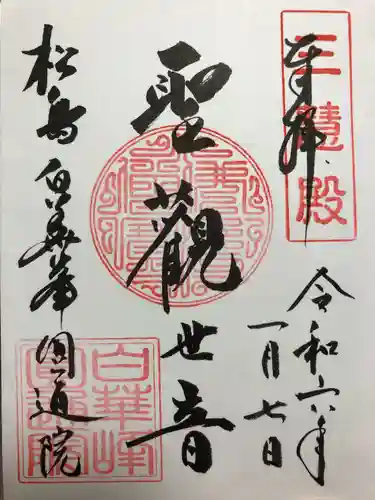 三慧殿
奉拝
令和六年
一月七日
聖観世音
松島白華峰圓通院
白華峰
圓通院